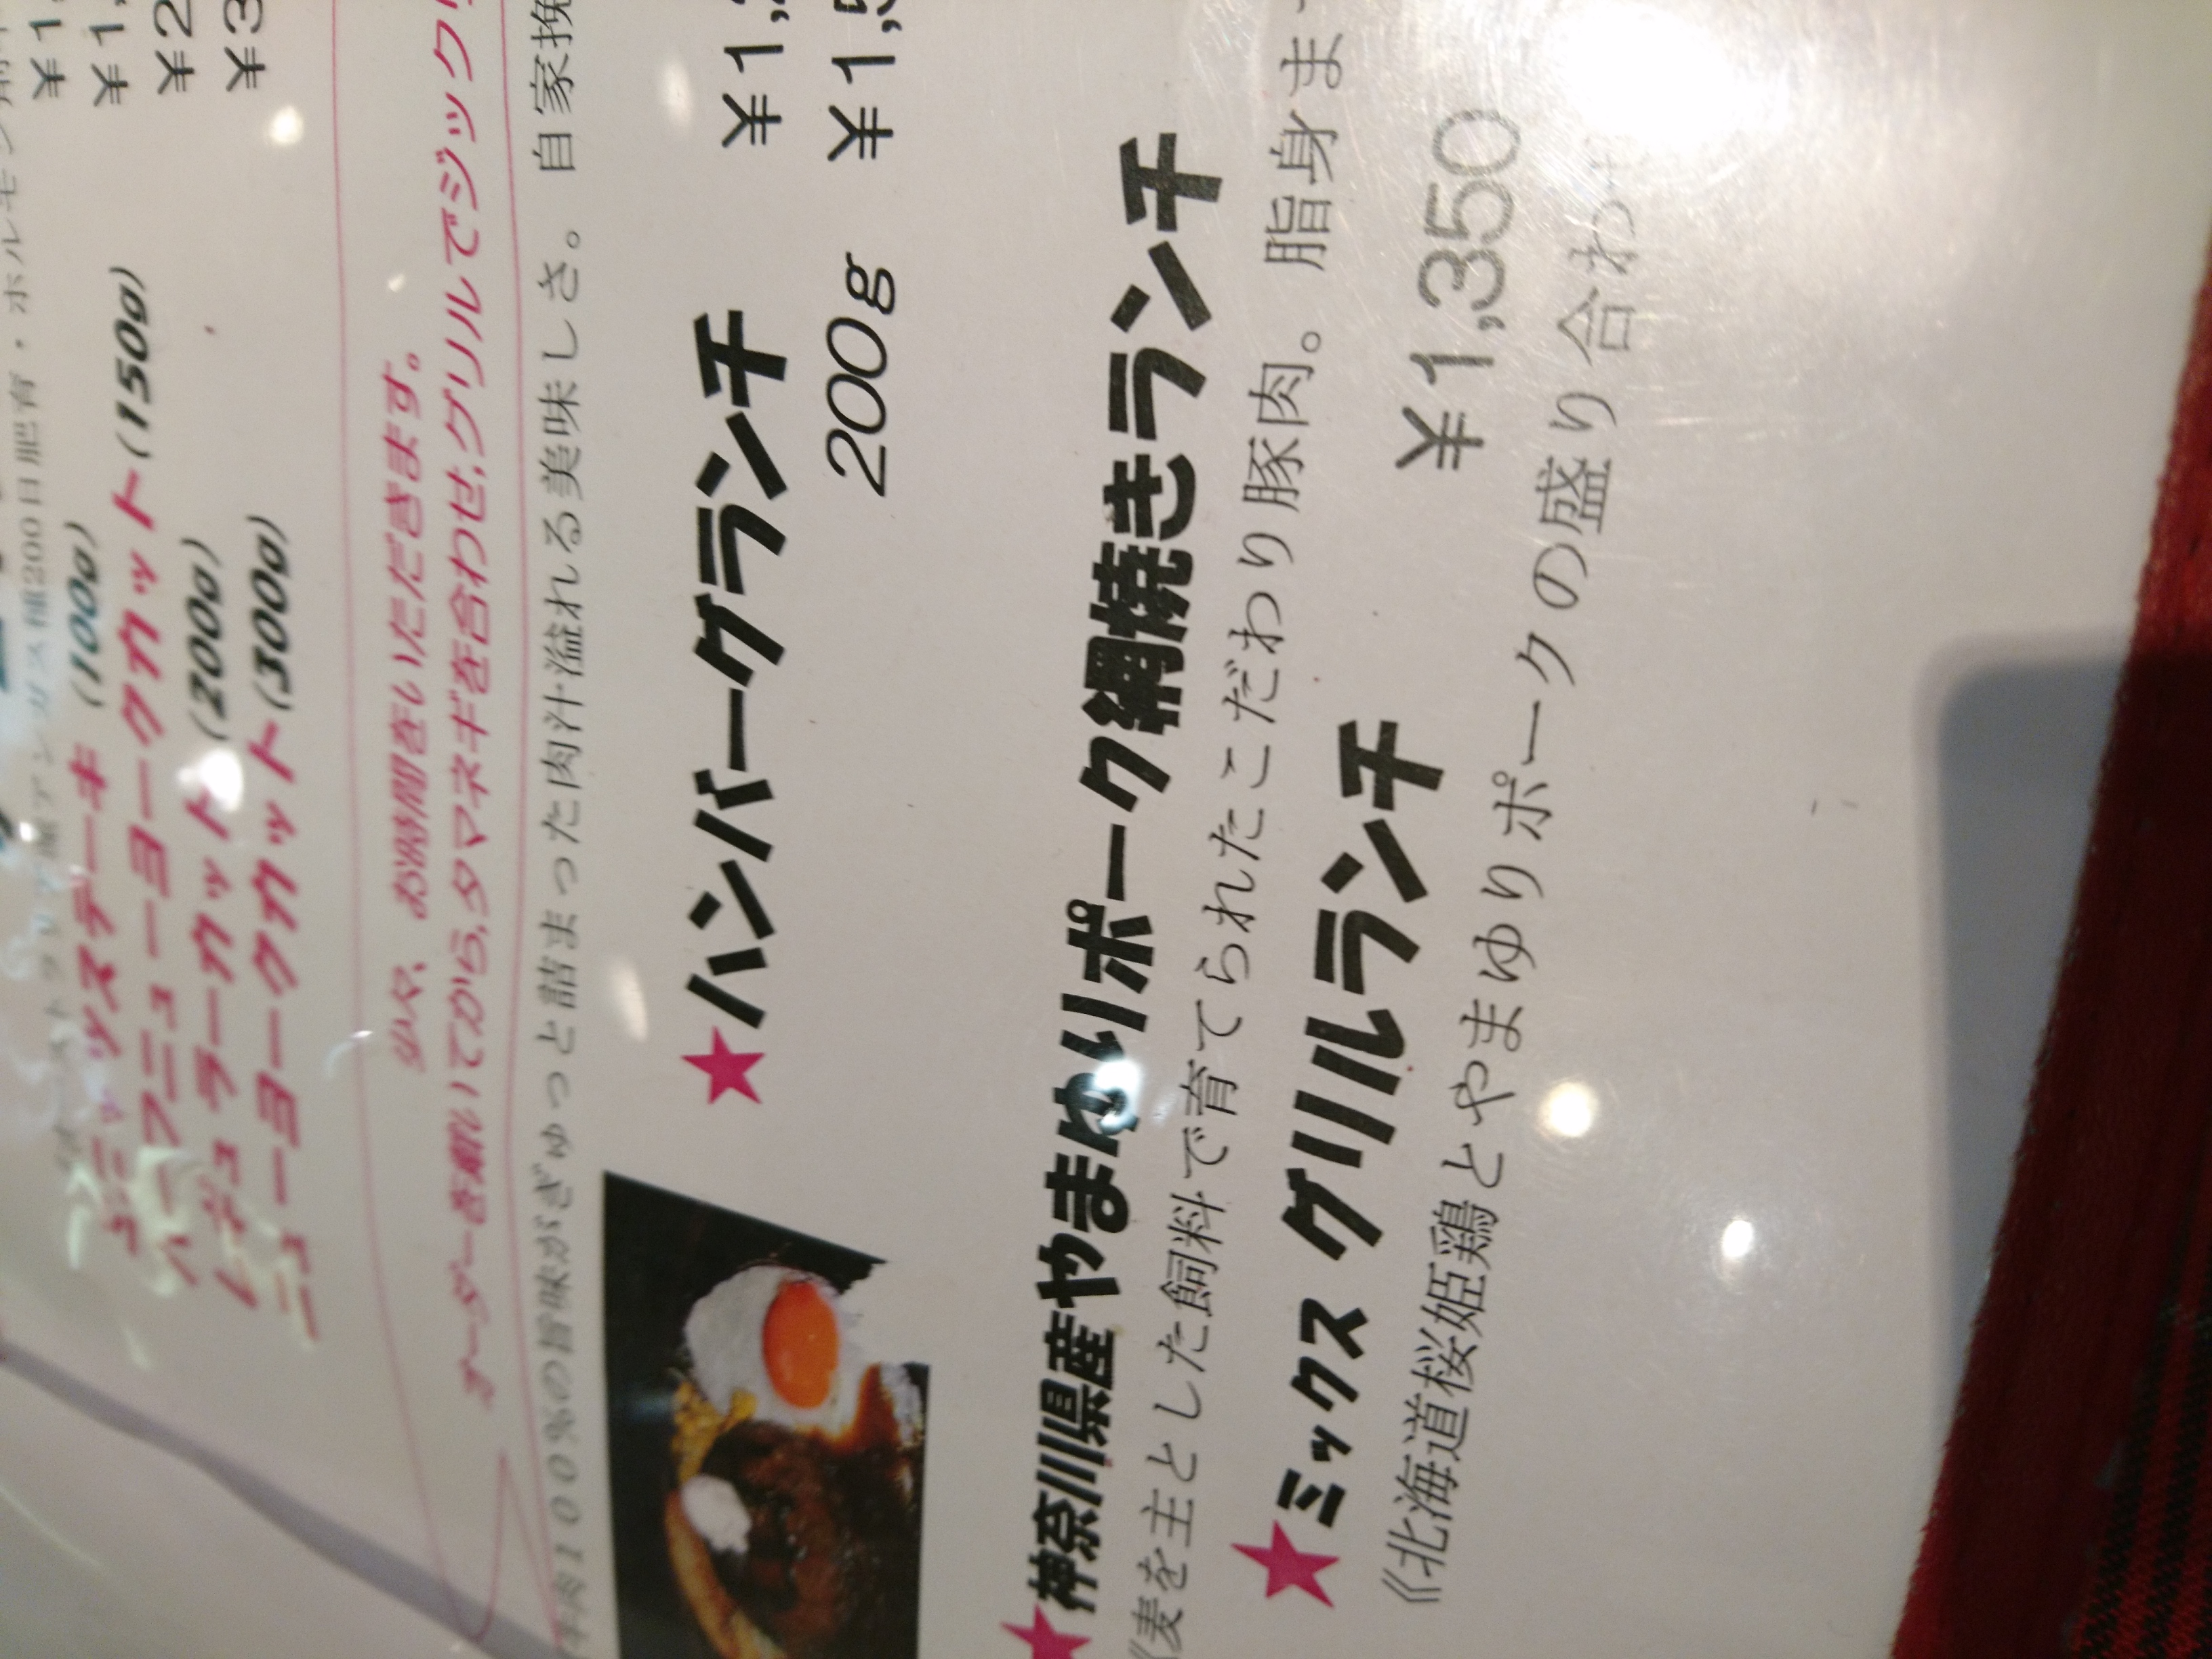 ホルモン剤
オーストラリア産アンガス種200日肥育・
ステーキ (100g) ¥1,
ハーフニューヨークカット(150g) ¥1,
レギュラーカット (200g) ¥2
ニューヨークカット(300g) ¥3
少々、お時間をいただきます。
オーダーを頂いてから,タマネギを合わせ,グリルでジックリ
牛肉100%の旨味がぎゅっと詰まった肉汁溢れる美味しさ。 自家挽
★ハンバーグランチ ¥1,
200g ¥1,5
★神奈川県産やまゆりポーク網焼きランチ
《麦を主とした飼料で育てられたこだわり豚肉。脂身ま
★ミックス グリルランチ ¥1,350
《北海道桜姫鶏とやまゆりポークの盛り合わせ